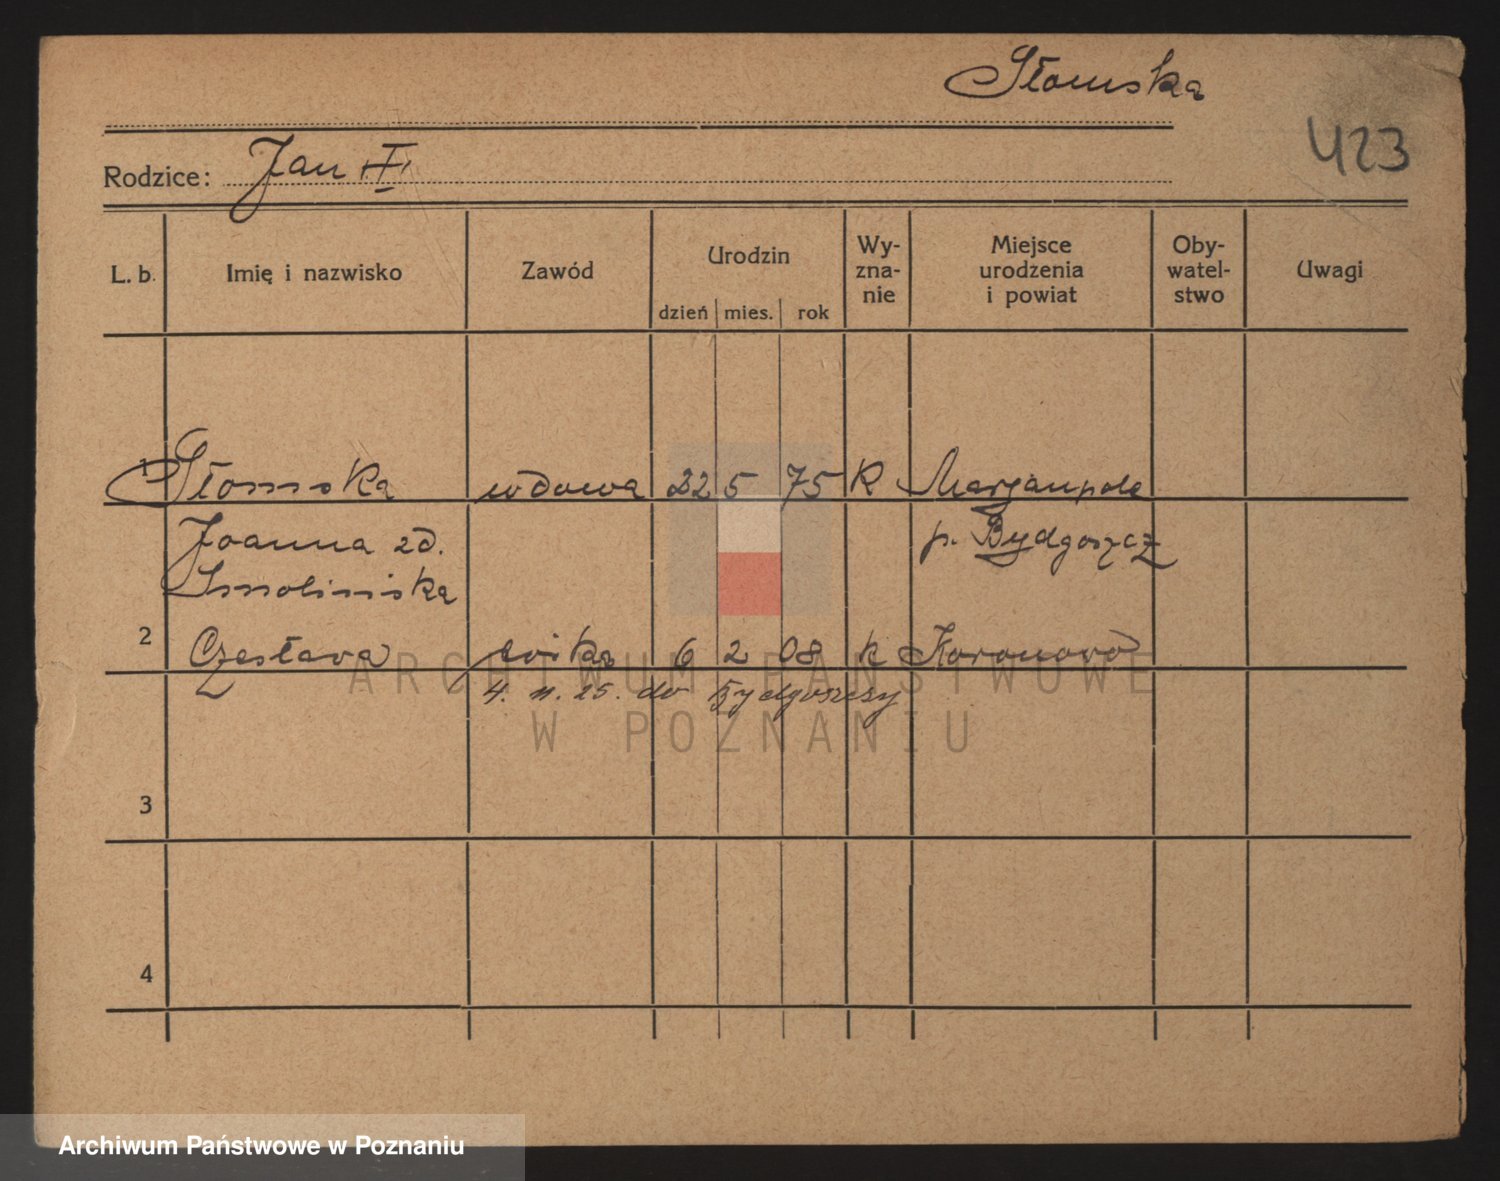 Słomska
423
Rodzice: Jan II
L. b. Imię i nazwisko Zawód Urodzin dzień mies. rok Wy-zna-nie Miejsce urodzenia i powiat Oby-watel-stwo Uwagi
1 Słomska wdowa 22 5 75 K Marjanpole
Joanna zd. p. Bydgoszcz
Smolińska
2 Czesława córka 6 2 08 k Koronowo
4. 11. 25. do Bydgoszczy
3
4
ARCHIWUM PAŃSTWOWE
W POZNANIU
Archiwum Państwowe w Poznaniu